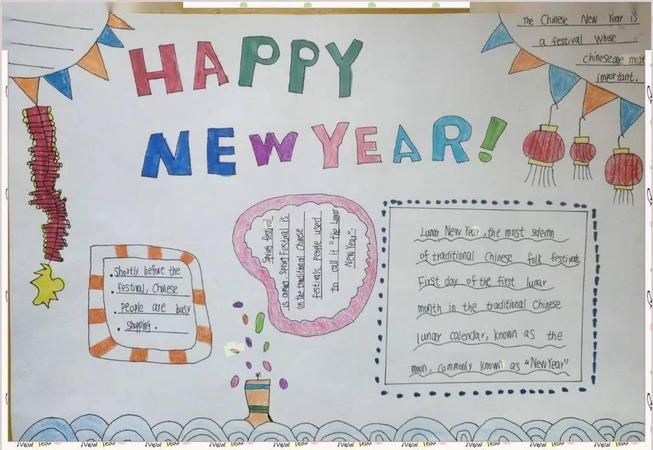 The Chinese New Year is
a festival whose
chinese are most
important.
HAPPY
NEW YEAR!
Shortly before the
festival, Chinese
people are busy
shopping.
Spring festival
is a man. Spring Festival is
on the traditional Chinese
festivals. People used
to call it "the lunar
New Year".
Lunar New Year, the most solemn
of traditional Chinese folk festivals
First day of the first lunar
month in the traditional Chinese
lunar calendar, known as the
moon, commonly known as "New Year"